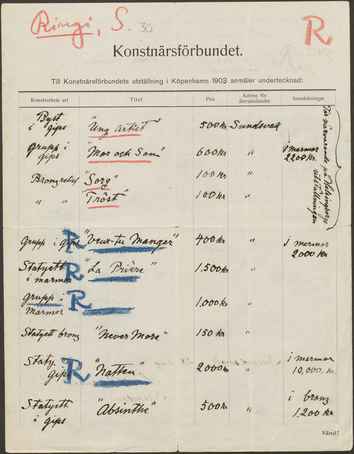 Ringi, S. 30
R
Konstnärsförbundet.
Till Konstnärsförbundets utställning i Köpenhamn 1903 anmäler undertecknad:
Konstverkets art Titel Pris Adress för återsändandet Anmärkningar
Byst i gips "Ung artist" 500 kr Sundsvall
Grupp i gips "Mor och Son" 600 kr " i marmor 2200 kr
Bronzrelief "Sorg" 100 kr "
" " "Tröst" 100 kr "
För närvarande på Helsingborgs utställningen
Grupp i gips R "Veux-tu Manger" 400 kr " i marmor 2000 kr
Statyett i marmor R "La Prière" 1.500 kr "
grupp i marmor R 1.000 kr "
Statyett bronz "Never More" 150 kr "
Staty. gips R "Natten" 2000 kr " i marmor 10,000 kr.
Statyett i gips "Absinthe" 500 kr " i bronz 1,200 kr
Vänd!